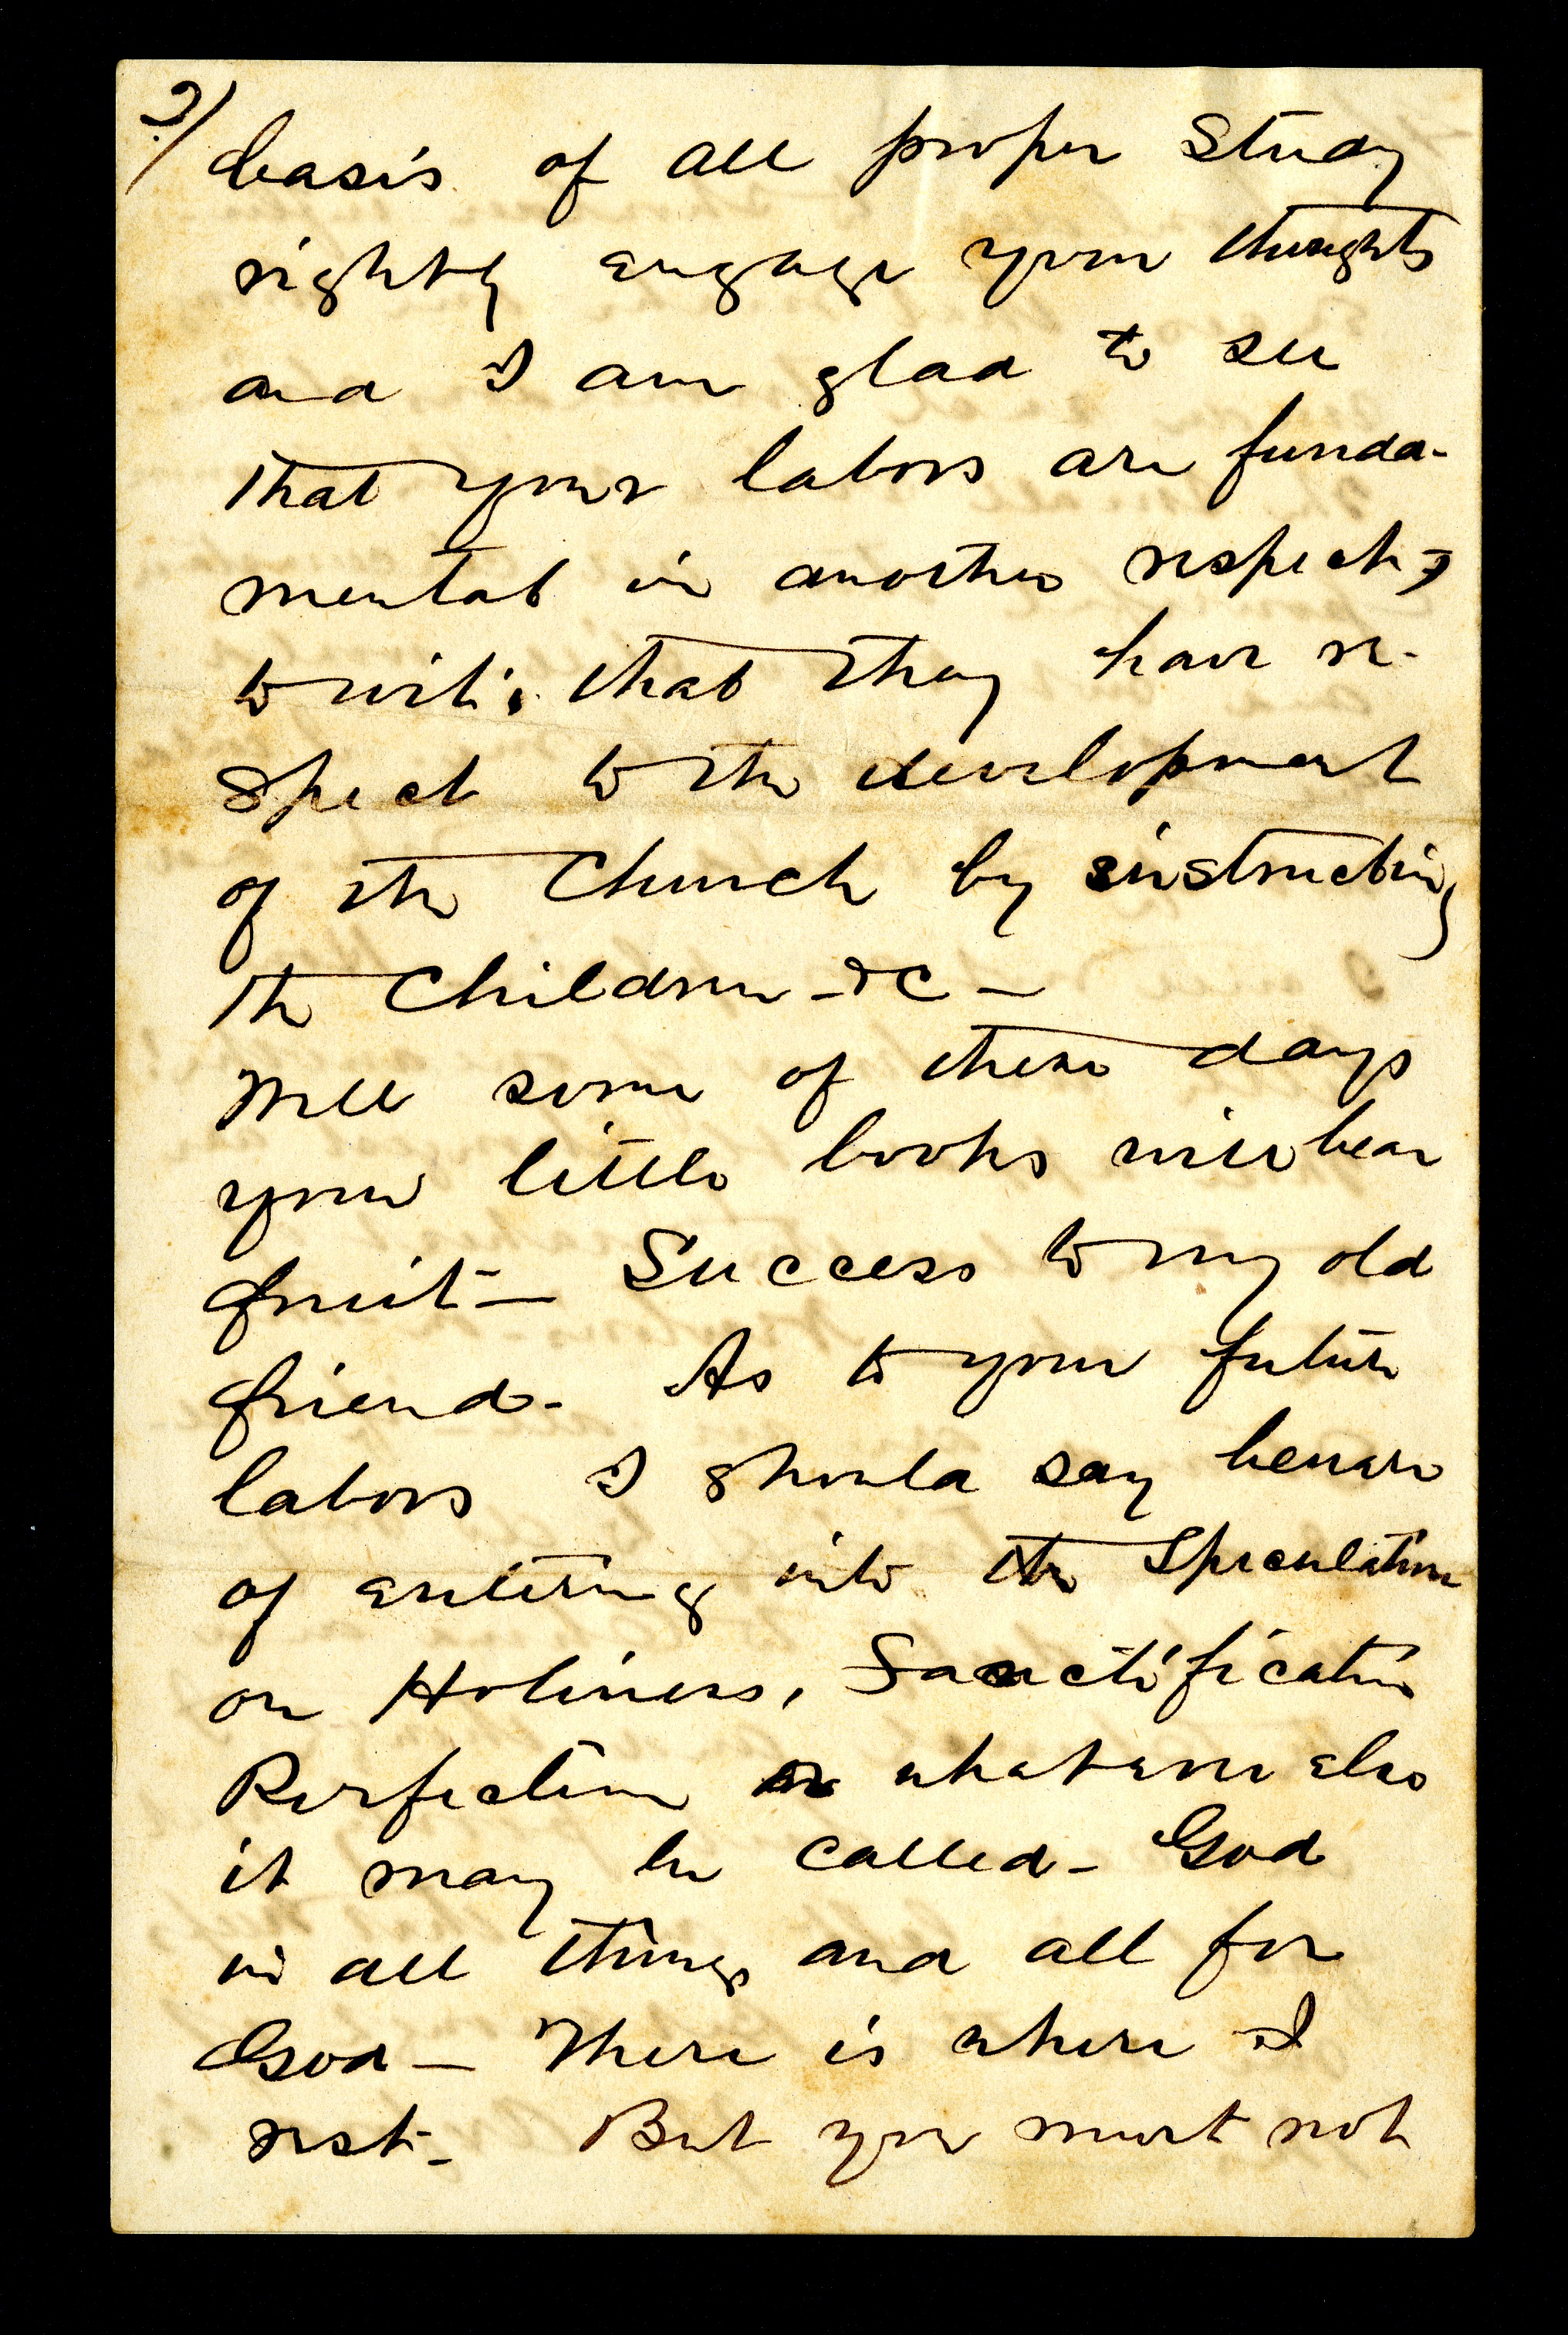 2/
basis of all proper study
rightly engage your thoughts
and I am glad to see
that your labors are funda-
mental in another respect,
to wit; that they have re-
spect to the development
of the Church by instructing
the Children - &c -
Well some of these days
your little books will bear
fruit - Success to my old
friend - As to your future
labors I should say beware
of entering into the Speculation
on Holiness, Sanctification
Perfection or whatever else
it may be called - God
in all things and all for
God - There is where I
rest - But you must not